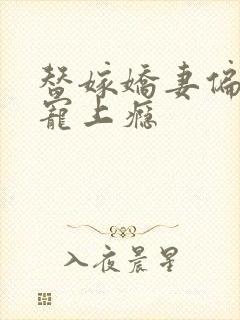 替嫁娇妻偏
宠上瘾
入夜晨星